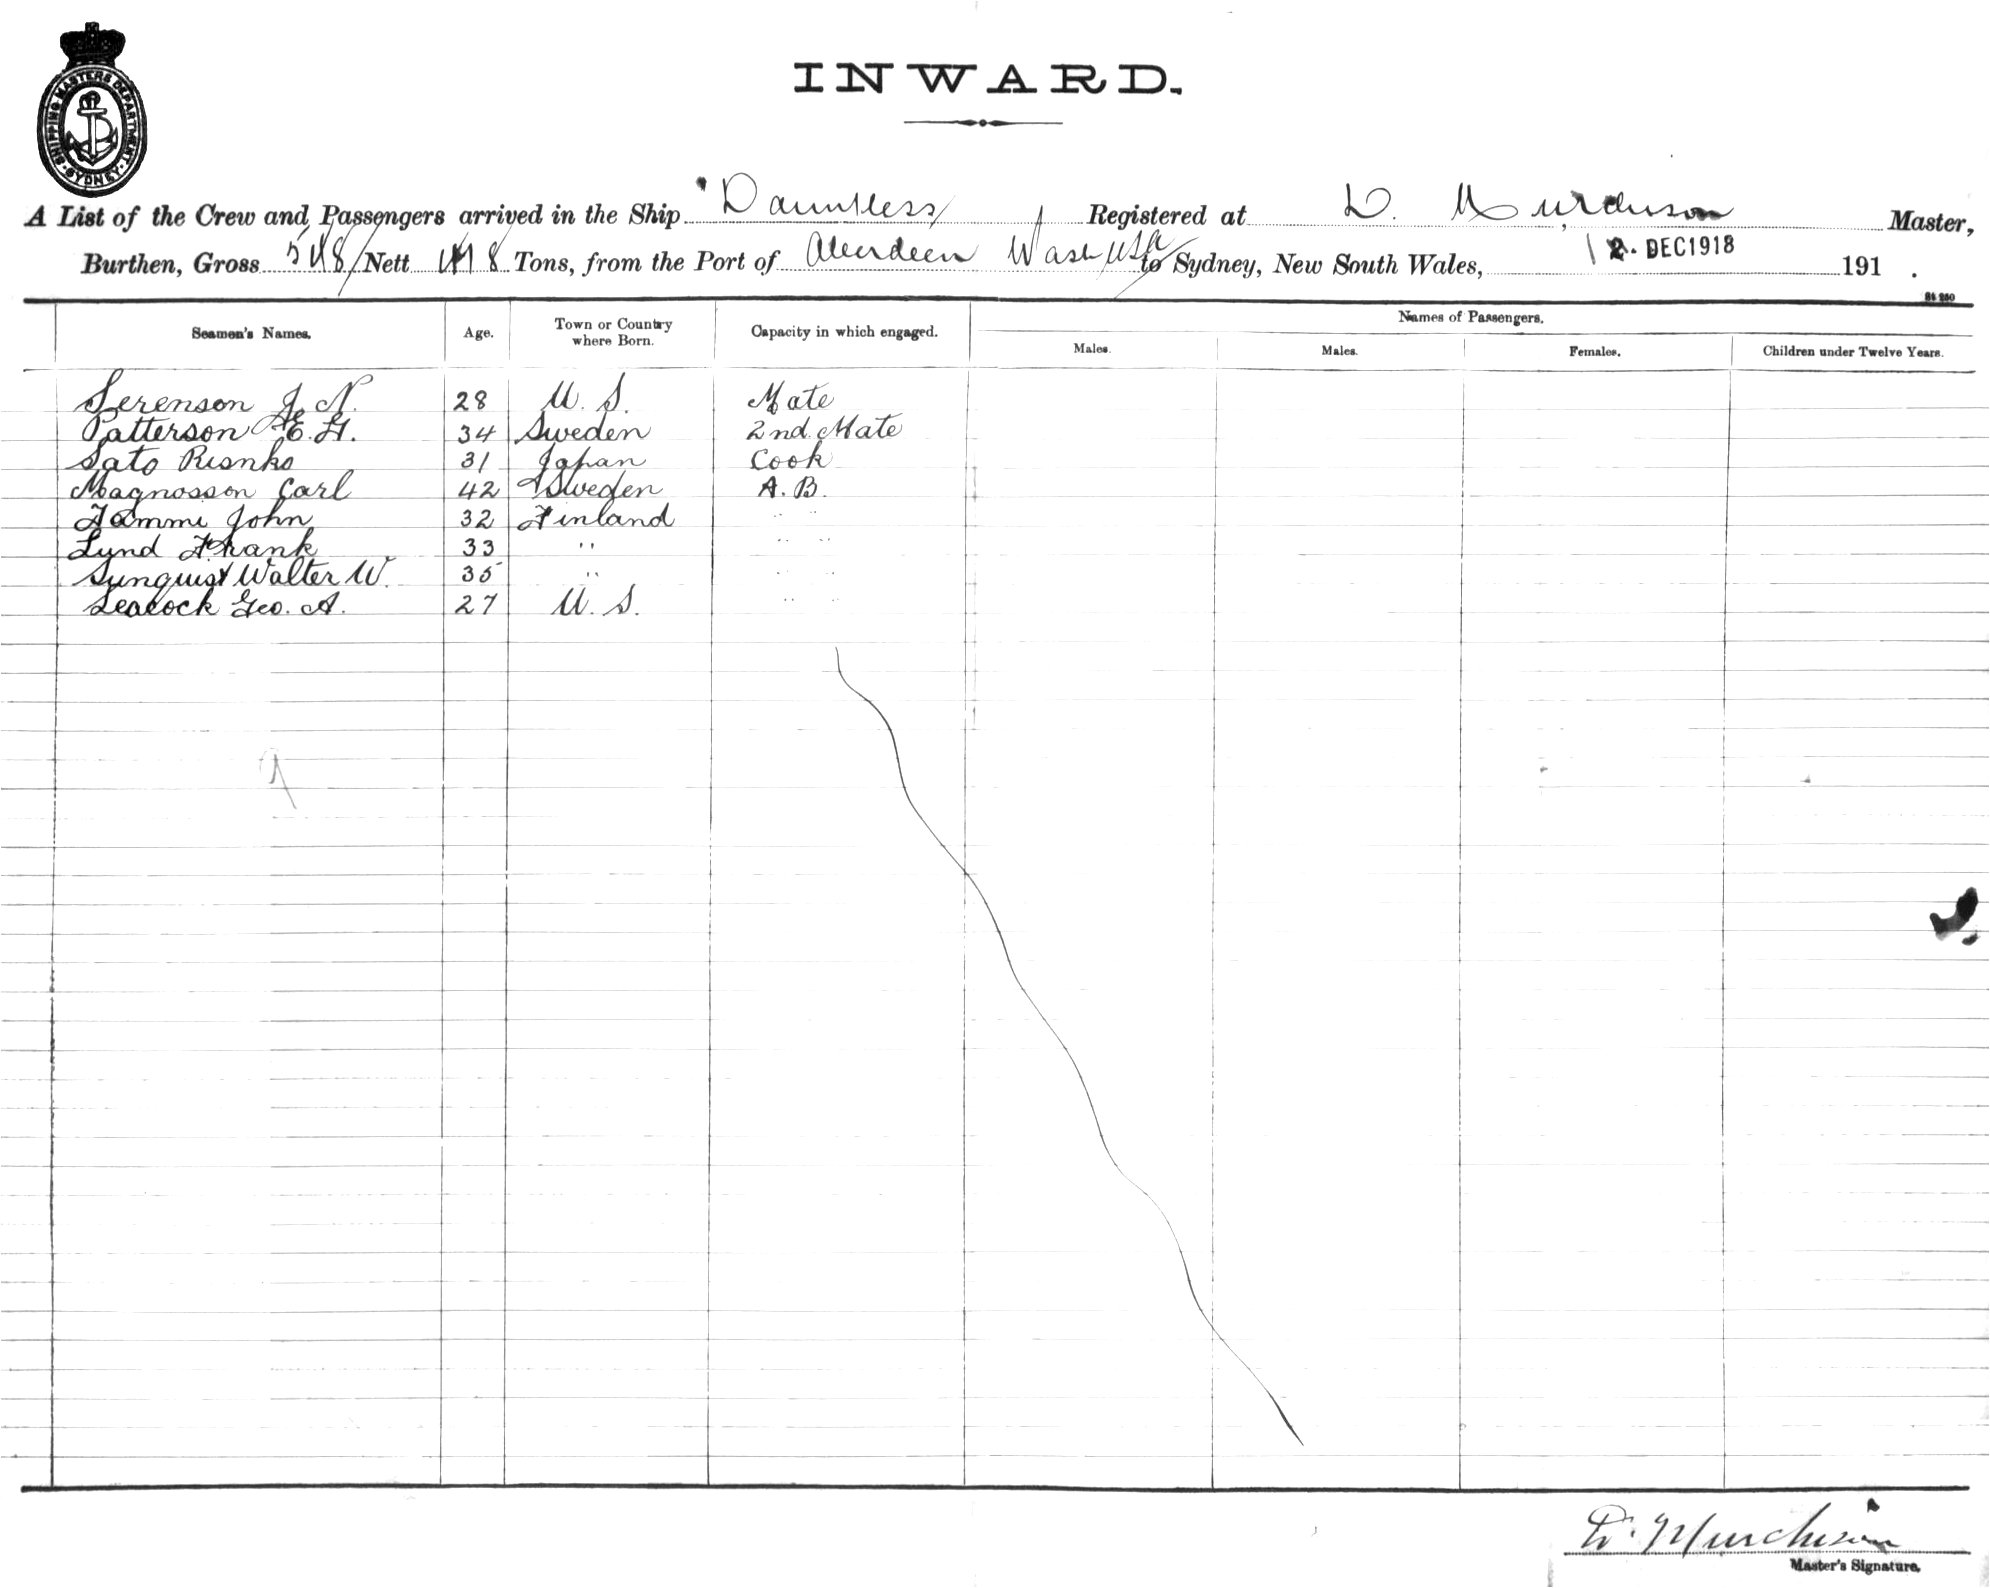 SHIPPING MASTERS DEPARTMENT
SYDNEY
INWARD.
A List of the Crew and Passengers arrived in the Ship Dauntless Registered at D. Murchison Master,
Burthen, Gross 548 Nett 478 Tons, from the Port of Aberdeen Wash USA to Sydney, New South Wales, 12. DEC 1918 191 .
St 250
Seamen's Names. Age. Town or Country where Born. Capacity in which engaged. Names of Passengers.
Males. Males. Females. Children under Twelve Years.
Serenson J. N. 28 U. S. Mate
Patterson E. H. 34 Sweden 2nd Mate
Sato Rionko 31 Japan Cook
Magnosson Carl 42 Sweden A. B.
Tammi John 32 Finland " "
Lund Frank 33 " " "
Sunquist Walter W. 35 " " "
Leacock Geo. A. 27 U. S. " "
D. Murchison
Master's Signature.